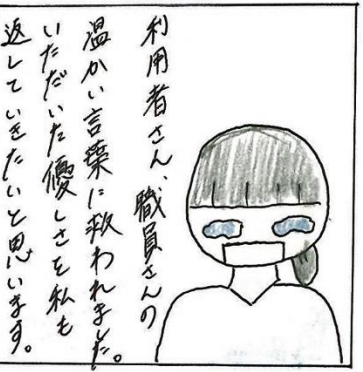 利用者さん、職員さんの
温かい言葉に救われました。
いただいた優しさを私も
返していきたいと思います。